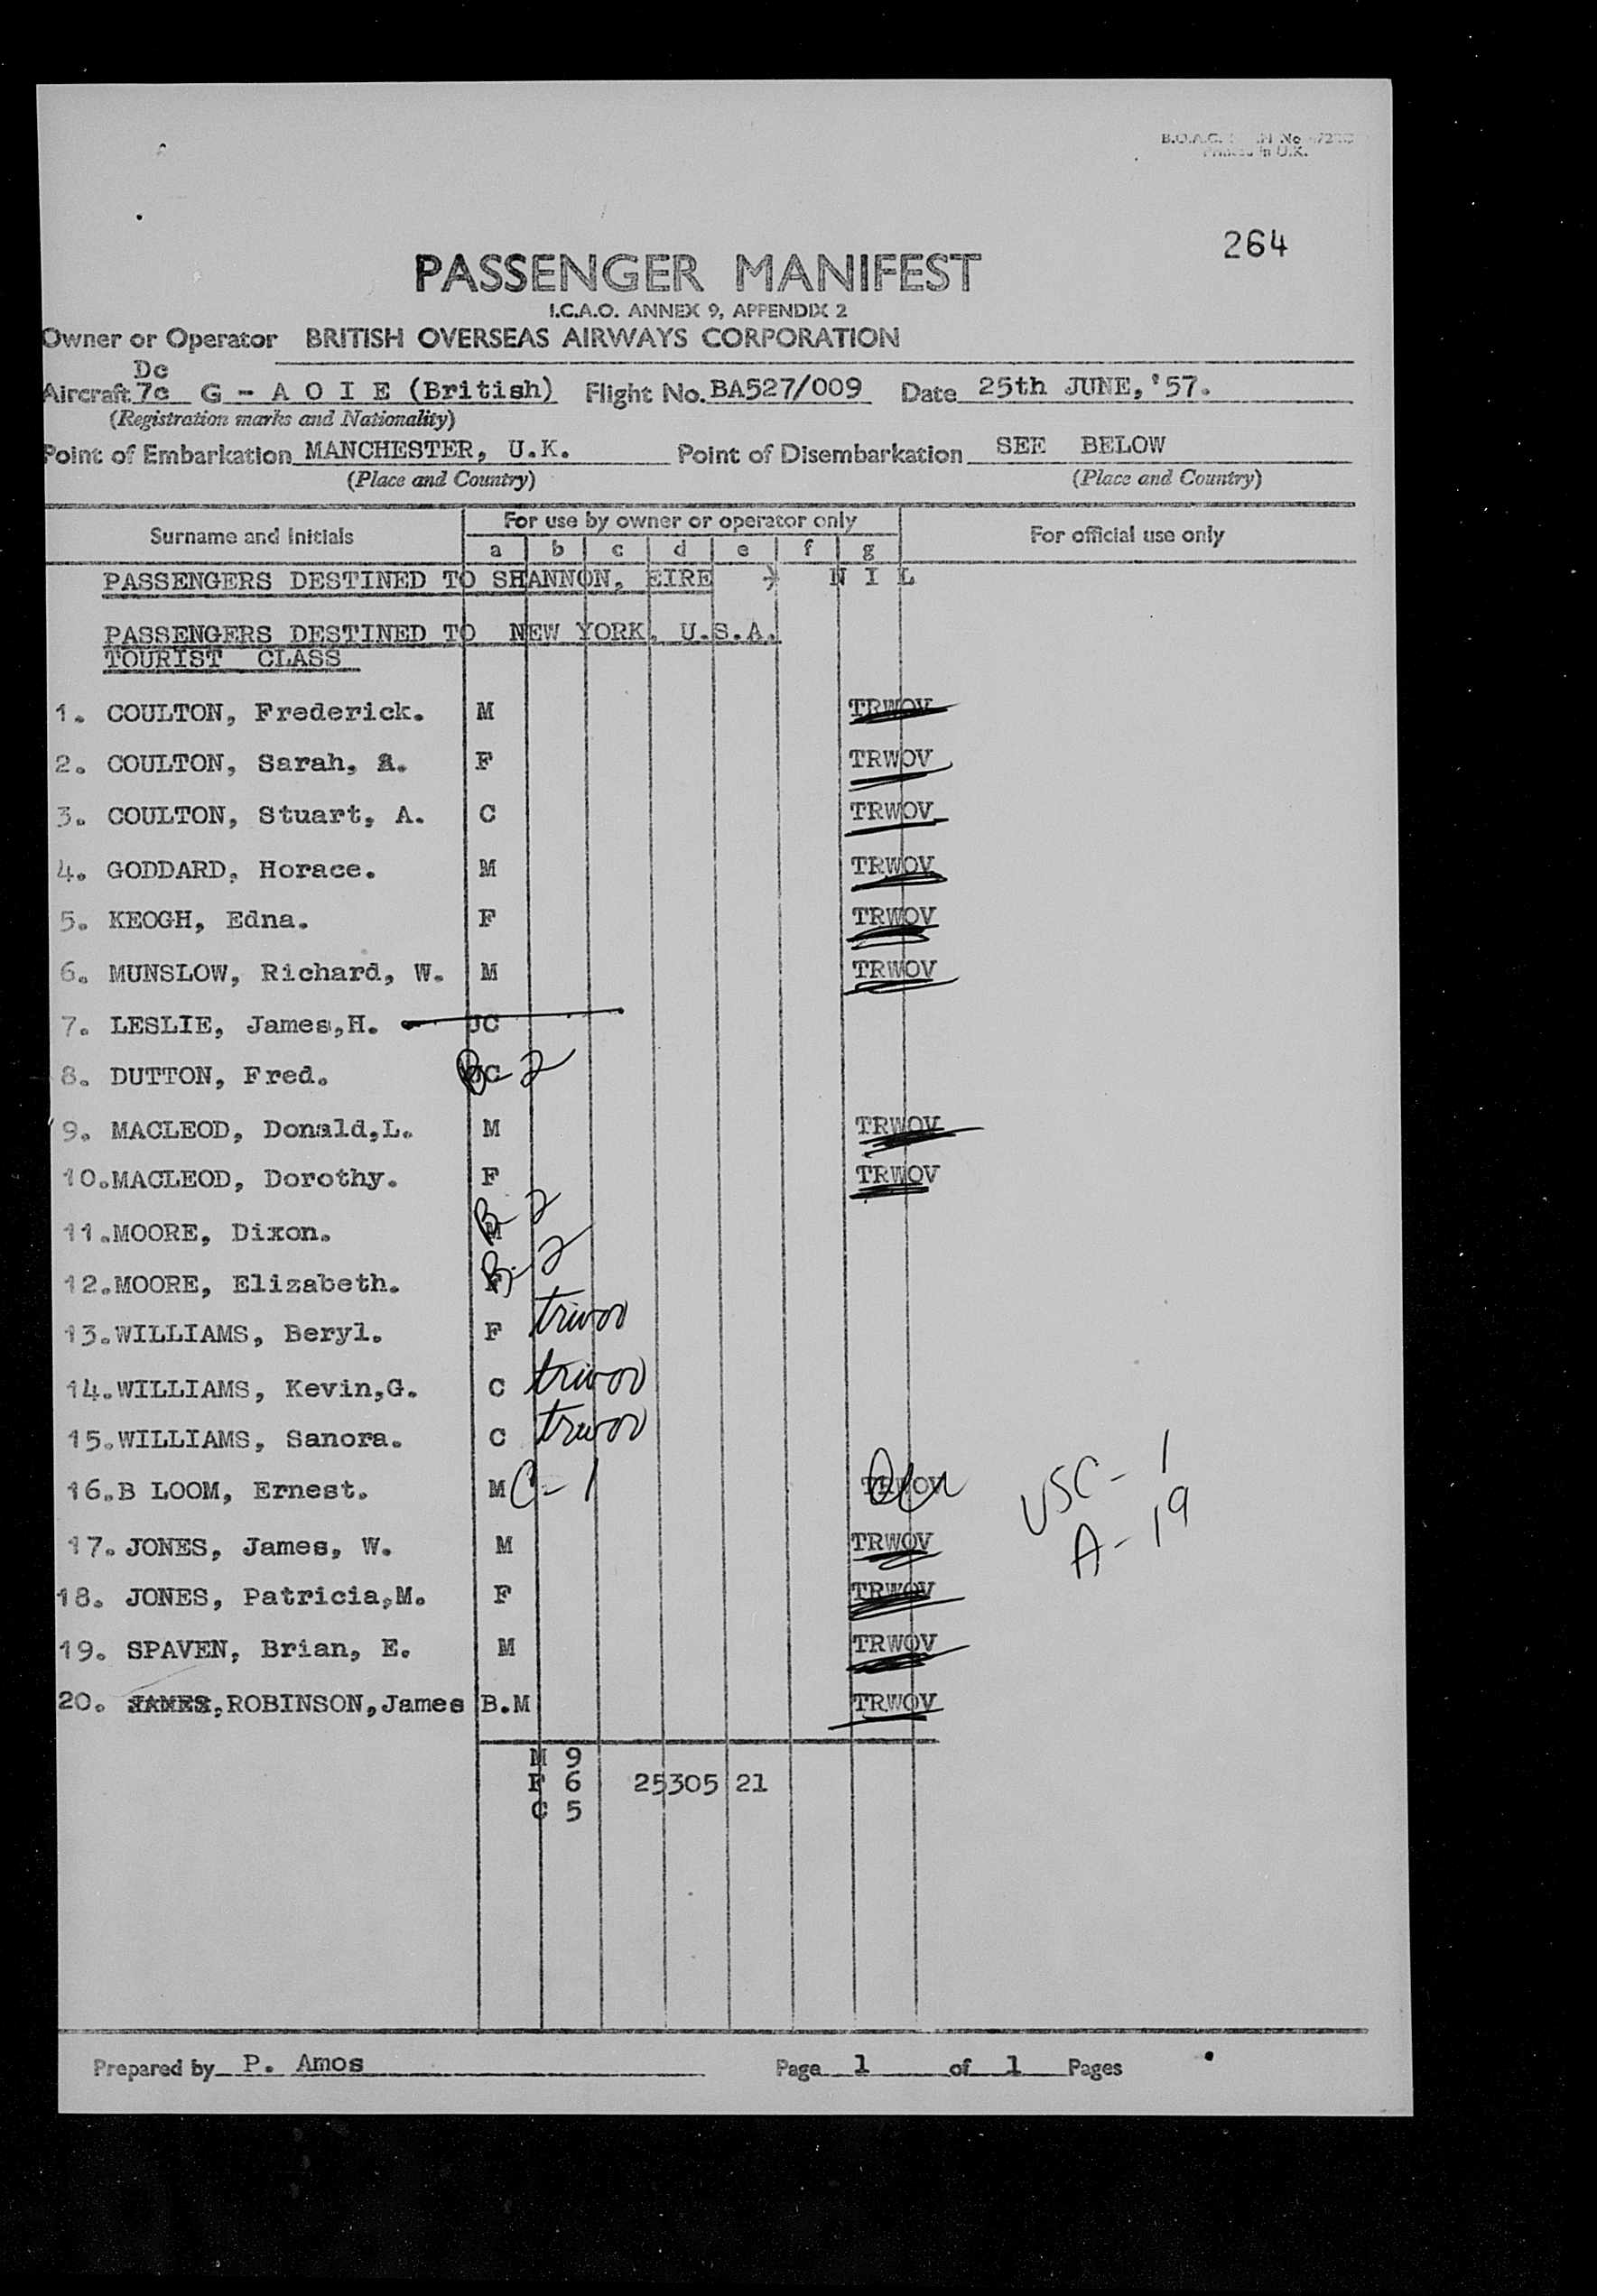 B.O.A.C.
Printed in U.K.
264
PASSENGER MANIFEST
I.C.A.O. ANNEX 9, APPENDIX 2
Owner or Operator BRITISH OVERSEAS AIRWAYS CORPORATION
Dc
Aircraft 7c G - A O I E (British) Flight No. BA527/009 Date 25th JUNE,'57.
(Registration marks and Nationality)
Point of Embarkation MANCHESTER, U.K. Point of Disembarkation SEE BELOW
(Place and Country) (Place and Country)
Surname and Initials For use by owner or operator only For official use only
a b c d e f g
PASSENGERS DESTINED TO SHANNON, EIRE N I L
PASSENGERS DESTINED TO NEW YORK, U.S.A.
TOURIST CLASS
1. COULTON, Frederick. M TRWOV
2. COULTON, Sarah, A. F TRWOV
3. COULTON, Stuart, A. C TRWOV
4. GODDARD, Horace. M TRWOV
5. KEOGH, Edna. F TRWOV
6. MUNSLOW, Richard, W. M TRWOV
7. LESLIE, James,H. JC
8. DUTTON, Fred. B-2
9. MACLEOD, Donald,L. M TRWOV
10.MACLEOD, Dorothy. F TRWOV
11.MOORE, Dixon. M B-2
12.MOORE, Elizabeth. F B-2
13.WILLIAMS, Beryl. F trwov
14.WILLIAMS, Kevin,G. C trwov
15.WILLIAMS, Sanora. C trwov
16.B LOOM, Ernest. M C-1 TRWOV USC-1
A-19
17. JONES, James, W. M TRWOV
18. JONES, Patricia,M. F TRWOV
19. SPAVEN, Brian, E. M TRWOV
20. JAMES,ROBINSON,James B.M TRWOV
M 9
F 6 25305 21
C 5
Prepared by P. Amos Page 1 of 1 Pages